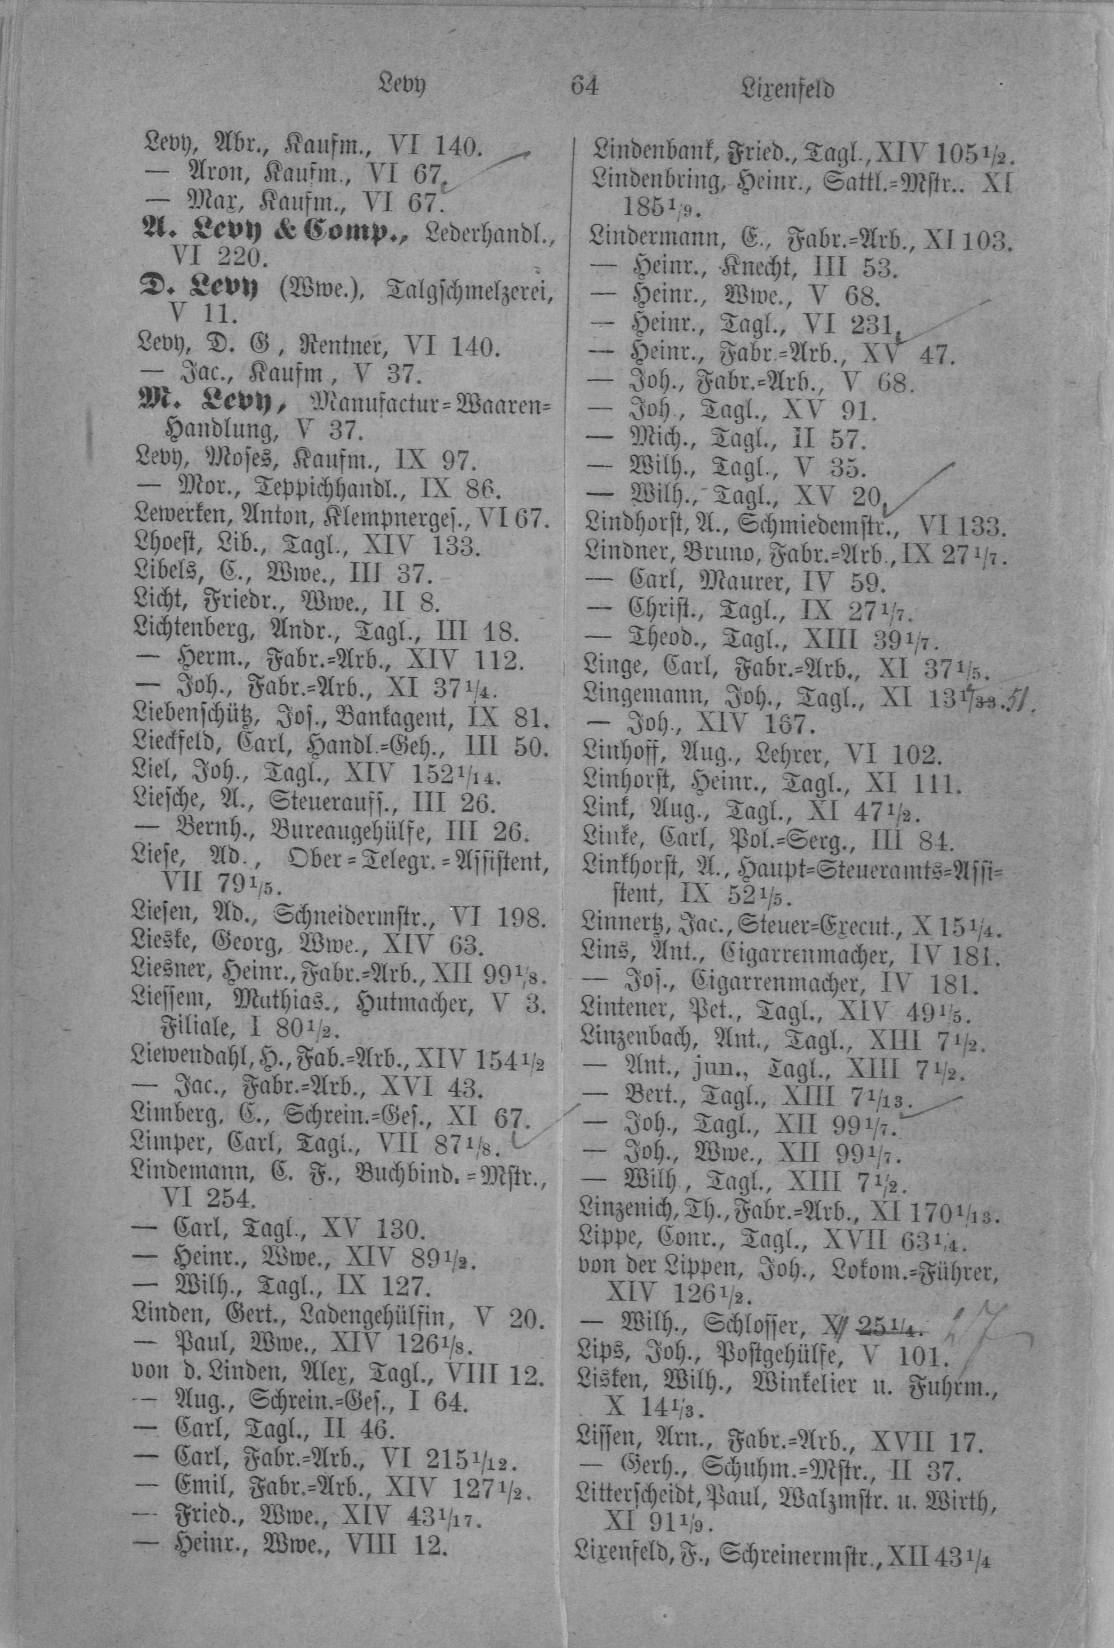 Levy 64 Lixenfeld
Levy, Abr., Kaufm., VI 140.
— Aron, Kaufm., VI 67.
— Max, Kaufm., VI 67.
A. Levy & Comp., Lederhandl.,
VI 220.
D. Levy (Wwe.), Talgschmelzerei,
V 11.
Levy, D. G, Rentner, VI 140.
— Jac., Kaufm, V 37.
M. Levy, Manufactur=Waaren=
Handlung, V 37.
Levy, Moses, Kaufm., IX 97.
— Mor., Teppichhandl., IX 86.
Lewerken, Anton, Klempnerges., VI 67.
Lhoest, Lib., Tagl., XIV 133.
Libels, C., Wwe., III 37.
Licht, Friedr., Wwe., II 8.
Lichtenberg, Andr., Tagl., III 18.
— Herm., Fabr.=Arb., XIV 112.
— Joh., Fabr.=Arb., XI 37 1/4.
Liebenschütz, Jos., Bankagent, IX 81.
Lieckfeld, Carl, Handl.=Geh., III 50.
Liel, Joh., Tagl., XIV 152 1/14.
Liesche, A., Steuerauff., III 26.
— Bernh., Bureaugehülfe, III 26.
Liese, Ad., Ober=Telegr.=Assistent,
VII 79 1/5.
Liesen, Ad., Schneidermstr., VI 198.
Lieske, Georg, Wwe., XIV 63.
Liesner, Heinr., Fabr.=Arb., XII 99 1/8.
Liessem, Mathias., Hutmacher, V 3.
Filiale, I 80 1/2.
Liewendahl, H., Fab.=Arb., XIV 154 1/2
— Jac., Fabr.=Arb., XVI 43.
Limberg, C., Schrein.=Ges., XI 67.
Limper, Carl, Tagl., VII 87 1/8.
Lindemann, C. F., Buchbind.=Mstr.,
VI 254.
— Carl, Tagl., XV 130.
— Heinr., Wwe., XIV 89 1/2.
— Wilh., Tagl., IX 127.
Linden, Gert., Ladengehülfin, V 20.
— Paul, Wwe., XIV 126 1/8.
von d. Linden, Alex, Tagl., VIII 12.
— Aug., Schrein.=Ges., I 64.
— Carl, Tagl., II 46.
— Carl, Fabr.=Arb., VI 215 1/12.
— Emil, Fabr.=Arb., XIV 127 1/2.
— Fried., Wwe., XIV 43 1/17.
— Heinr., Wwe., VIII 12.
Lindenbank, Fried., Tagl., XIV 105 1/2.
Lindenbring, Heinr., Sattl.=Mstr.. XI
185 1/9.
Lindermann, E., Fabr.=Arb., XI 103.
— Heinr., Knecht, III 53.
— Heinr., Wwe., V 68.
— Heinr., Tagl., VI 231.
— Heinr., Fabr.=Arb., XV 47.
— Joh., Fabr.=Arb., V 68.
— Joh., Tagl., XV 91.
— Mich., Tagl., II 57.
— Wilh., Tagl., V 35.
— Wilh., Tagl., XV 20.
Lindhorst, A., Schmiedemstr., VI 133.
Lindner, Bruno, Fabr.=Arb., IX 27 1/7.
— Carl, Maurer, IV 59.
— Christ., Tagl., IX 27 1/7.
— Theod., Tagl., XIII 39 1/7.
Linge, Carl, Fabr.=Arb., XI 37 1/5.
Lingemann, Joh., Tagl., XI 131/33. 51.
— Joh., XIV 167.
Linhoff, Aug., Lehrer, VI 102.
Linhorst, Heinr., Tagl., XI 111.
Link, Aug., Tagl., XI 47 1/2.
Linke, Carl, Pol.=Serg., III 84.
Linkhorst, A., Haupt=Steueramts=Assi=
stent, IX 52 1/5.
Linnertz, Jac., Steuer=Execut., X 15 1/4.
Lins, Ant., Cigarrenmacher, IV 181.
— Jos., Cigarrenmacher, IV 181.
Lintener, Pet., Tagl., XIV 49 1/5.
Linzenbach, Ant., Tagl., XIII 7 1/2.
— Ant., jun., Tagl., XIII 7 1/2.
— Bert., Tagl., XIII 7 1/13.
— Joh., Tagl., XII 99 1/7.
— Joh., Wwe., XII 99 1/7.
— Wilh, Tagl., XIII 7 1/2.
Linzenich, Th., Fabr.=Arb., XI 170 1/13.
Lippe, Conr., Tagl., XVII 63 1/4.
von der Lippen, Joh., Lokom.=Führer,
XIV 126 1/2.
— Wilh., Schlosser, XII 25 1/4. 27
Lips, Joh., Postgehülfe, V 101.
Lisken, Wilh., Winkelier u. Fuhrm.,
X 14 1/3.
Lissen, Arn., Fabr.=Arb., XVII 17.
— Gerh., Schuhm.=Mstr., II 37.
Litterscheidt, Paul, Walzmstr. u. Wirth,
XI 91 1/9.
Lixenfeld, F., Schreinermstr., XII 43 1/4